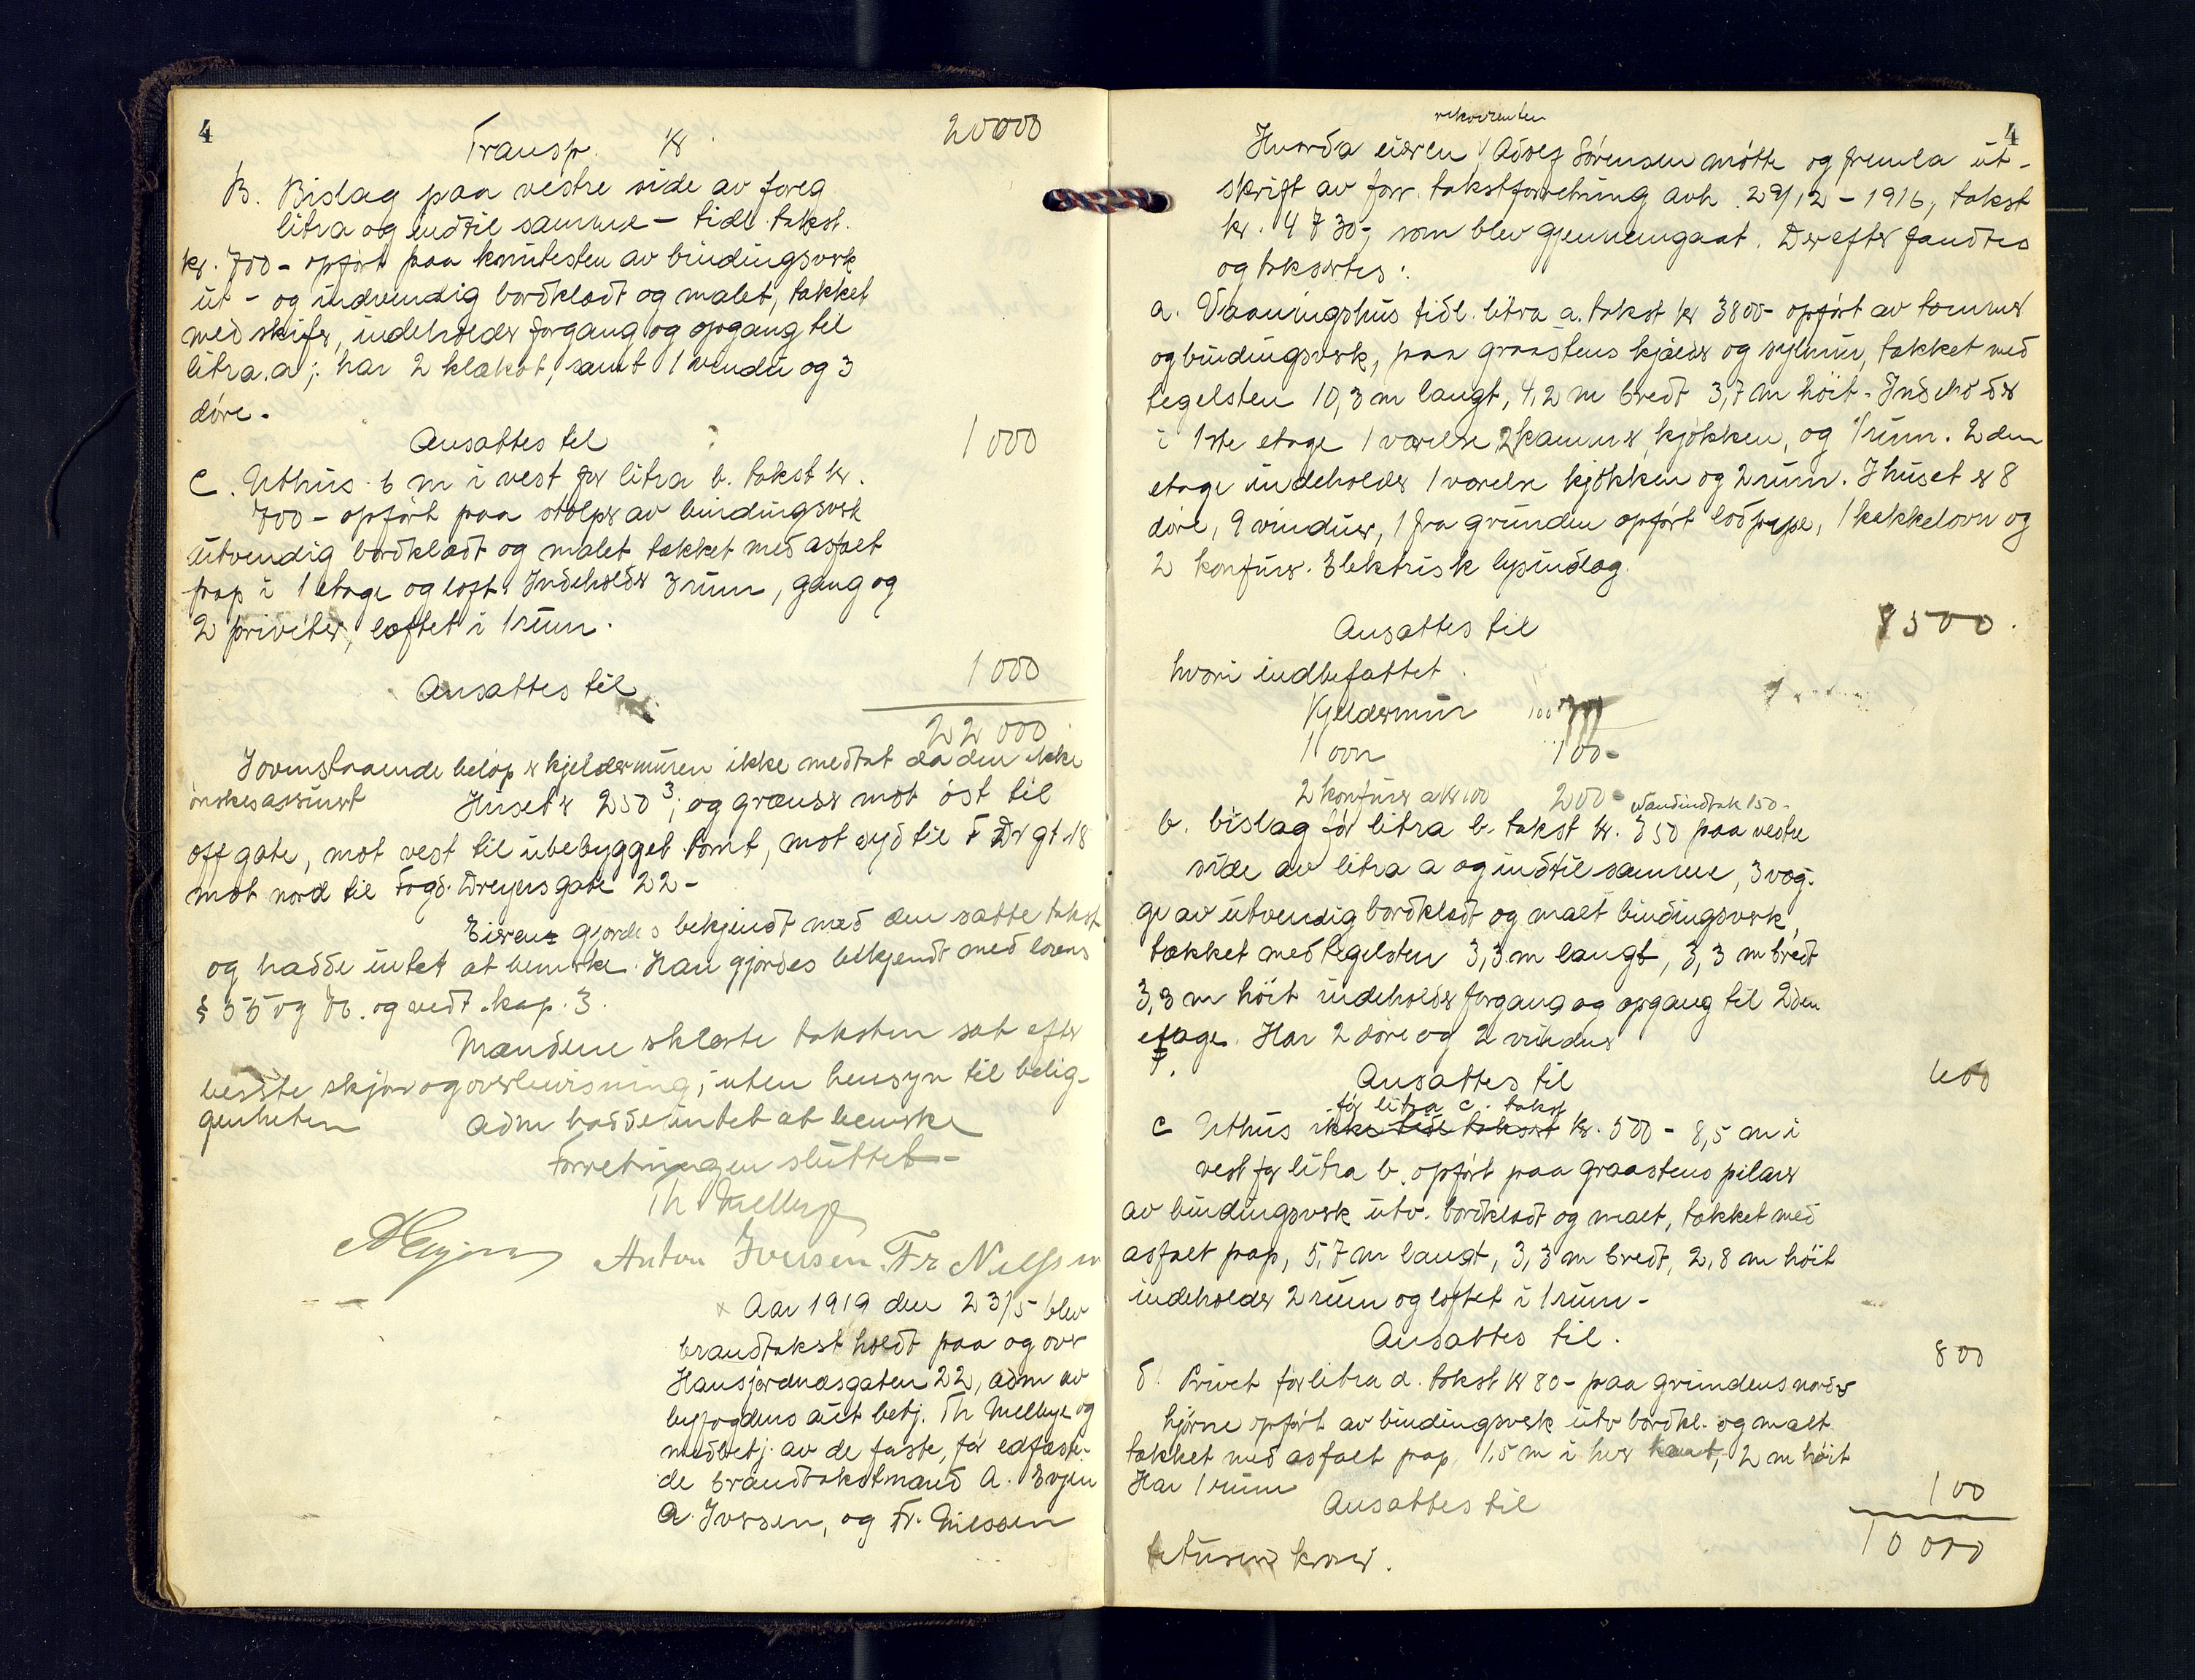 4
Transp. kr. 20000
B. Bislag paa vestre side av foreg
litra og indtil samme - tidl. takst.
kr. 700 - opført paa knutesten av bindingsverk
ut - og indvendig bordklædt og malet, tækket
med skifer, indeholder forgang og opgang til
litra. a; har 2 klakot, samt 1 vindu og 3
døre.
Ansattes til 1000
C. Uthus 6 m i vest for litra b. takst kr.
700 - opført paa stolper av bindingsverk
utvendig bordklædt og malet tækket med asfalt
pap i 1 etage og loft. Indeholder 3 rum, gang og
2 priveter, loftet i 1 rum.
Ansattes til 1000
22000
I ovenstaaende beløp er kjeldermuren ikke medtat da den ikke
ønskes assurert Huset er 250 3; og grænser mot øst til
off gate, mot vest til ubebygget tomt, mot syd til F Dr gt 18
mot nord til Fogd. Dreyers gate 22 -
Eieren gjordes bekjendt med den satte takst
og hadde intet at bemerke. Han gjordes bekjendt med lovens
§ 35 og 76. og vedt. kap. 3.
Mændene erklærte taksten sat efter
bedste skjøn og overbevisning; uten hensyn til belig-
genheten Adm hadde intet at bemerke
Forretningen sluttet -
Th Mellbye
A Evjen Anton Iversen Fr Nilssen
x Aar 1919 den 23/5 blev
brandtakst holdt paa og over
Hansjordnæsgaten 22, adm av
byfogdens aut betj. Th Mellbye og
medbetj. av de faste, før edfæste-
de brandtakstmænd A. Evjen
A. Iversen, og Fr. Nilssen
4
rekvirenten
Hvorda eieren Adolf Sørensen møtte og fremla ut-
skrift av forr. takstforretning avh. 29/12 - 1916, takst
kr. 4730,- som blev gjennemgaat. Derefter fandtes
og takseres:
a. Vaaningshus tidl. litra a. takst kr 3800 - opført av tømmer
og bindingsverk, paa graastens kjælder og sylmur, tækket med
tegelsten 10,3 m langt, 4,2 m bredt 3,7 m høit. Indeholder
i 1ste etage 1 værelse 2 kammer, kjøkken, og 1 rum. 2den
etage indeholder 1 værelse kjøkken og 2 rum. I huset er 8
døre, 9 vinduer, 1 fra grunden opført lodpipe, 1 kakkelovn og
2 komfurer. Elektrisk lysindlæg.
Ansattes til 8500.
hvori indbefattet
Kjeldermur 100
1 ovn 100 -
2 komfurer a kr 100 200 - Vandindtak 150 -
b. bislag før litra b. takst kr. 350 paa vestre
side av litra a og indtil samme, 3 væg-
ge av utvendig bordklædt og malt bindingsverk,
tækket med tegelsten 3,3 m langt, 3,3 m bredt
3,3 m høit indeholder forgang og opgang til 2den
etage. Har 2 døre og 2 vinduer
Ansattes til 600
før litra c. takst
c Uthus ikke tidl taksert kr. 500 - 8,5 m i
vest for litra b. opført paa graastens pilarer
av bindingsverk utv. bordklædt og malt, tækket med
asfalt pap, 5,7 m langt, 3,3 m bredt, 2,8 m høit
indeholder 2 rum og loftet i 1 rum -
Ansattes til. 800
d. Privet før litra d. takst kr 80 - paa grundens nordr
hjørne opført av bindingsverk utv bordkl. og malt
tækket med asfalt pap, 1,5 m i hver kant, 2 m høit
Har 1 rum
Ansattes til 100
10000
titusen kroner.